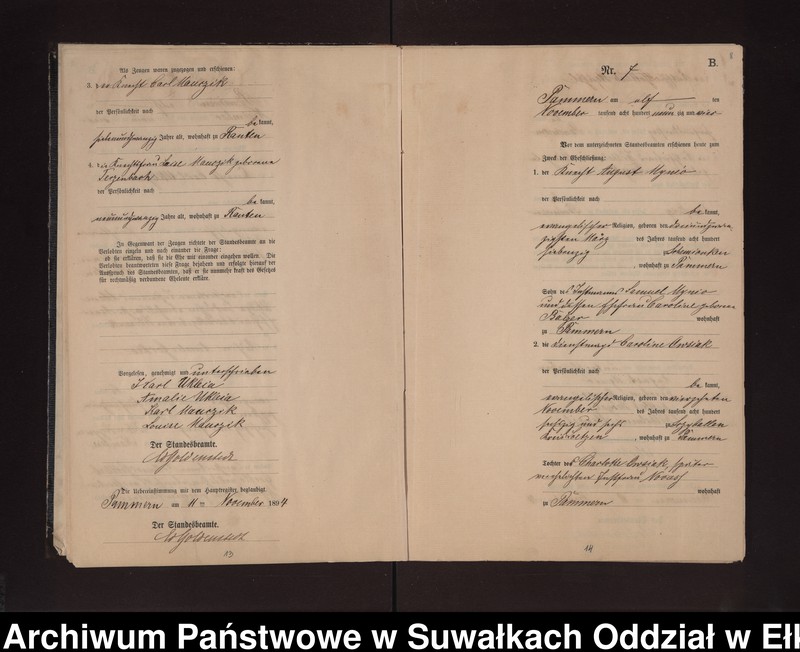 Als Zeugen waren zugezogen und erschienen:
3. der Knecht Carl Maurzik
der Persönlichkeit nach
be kannt,
siebenundzwanzig Jahre alt, wohnhaft zu Kanten
4. die Knechtsfrau Louise Maurzik geborene
der Persönlichkeit nach
be kannt,
neunundzwanzig Jahre alt, wohnhaft zu Kanten
In Gegenwart der Zeugen richtete der Standesbeamte an die
Verlobten einzeln und nach einander die Frage:
ob sie erklären, daß sie die Ehe mit einander eingehen wollen. Die
Verlobten beantworteten diese Frage bejahend und erfolgte hierauf der
Ausspruch des Standesbeamten, daß er sie nunmehr kraft des Gesetzes
für rechtmäßig verbundene Eheleute erkläre.
Vorgelesen, genehmigt und unterschrieben
Karl Ukleia
Amalie Ukleia
Karl Maurzik
Louise Maurzik
Der Standesbeamte.
Die Uebereinstimmung mit dem Hauptregister beglaubigt
Pammern am 11 ten November 1894
Der Standesbeamte.
13
B.
Nr. 7
Pammern am elf ten
November tausend acht hundert neun zig und vier
Vor dem unterzeichneten Standesbeamten erschienen heute zum
Zweck der Eheschließung:
1. der Knecht August Mynio
der Persönlichkeit nach
be kannt,
evangelischer Religion, geboren den
zigsten März des Jahres tausend acht hundert
siebenzig
, wohnhaft zu Pammern
Sohn des Instmanns Samuel Mynio
und dessen Ehefrau Caroline geborene
Balzer wohnhaft
zu Pammern
2. die Dienstmagd Caroline Owsiak
der Persönlichkeit nach
be kannt,
evangelischer Religion, geboren den vierzehnten
November des Jahres tausend acht hundert
sechzig und sechs zu
, wohnhaft zu Pammern
Tochter der Charlotte Owsiak, später
verehelichten Instfrau
wohnhaft
zu Pammern
14
Archiwum Państwowe w Suwałkach Oddział w Ełk